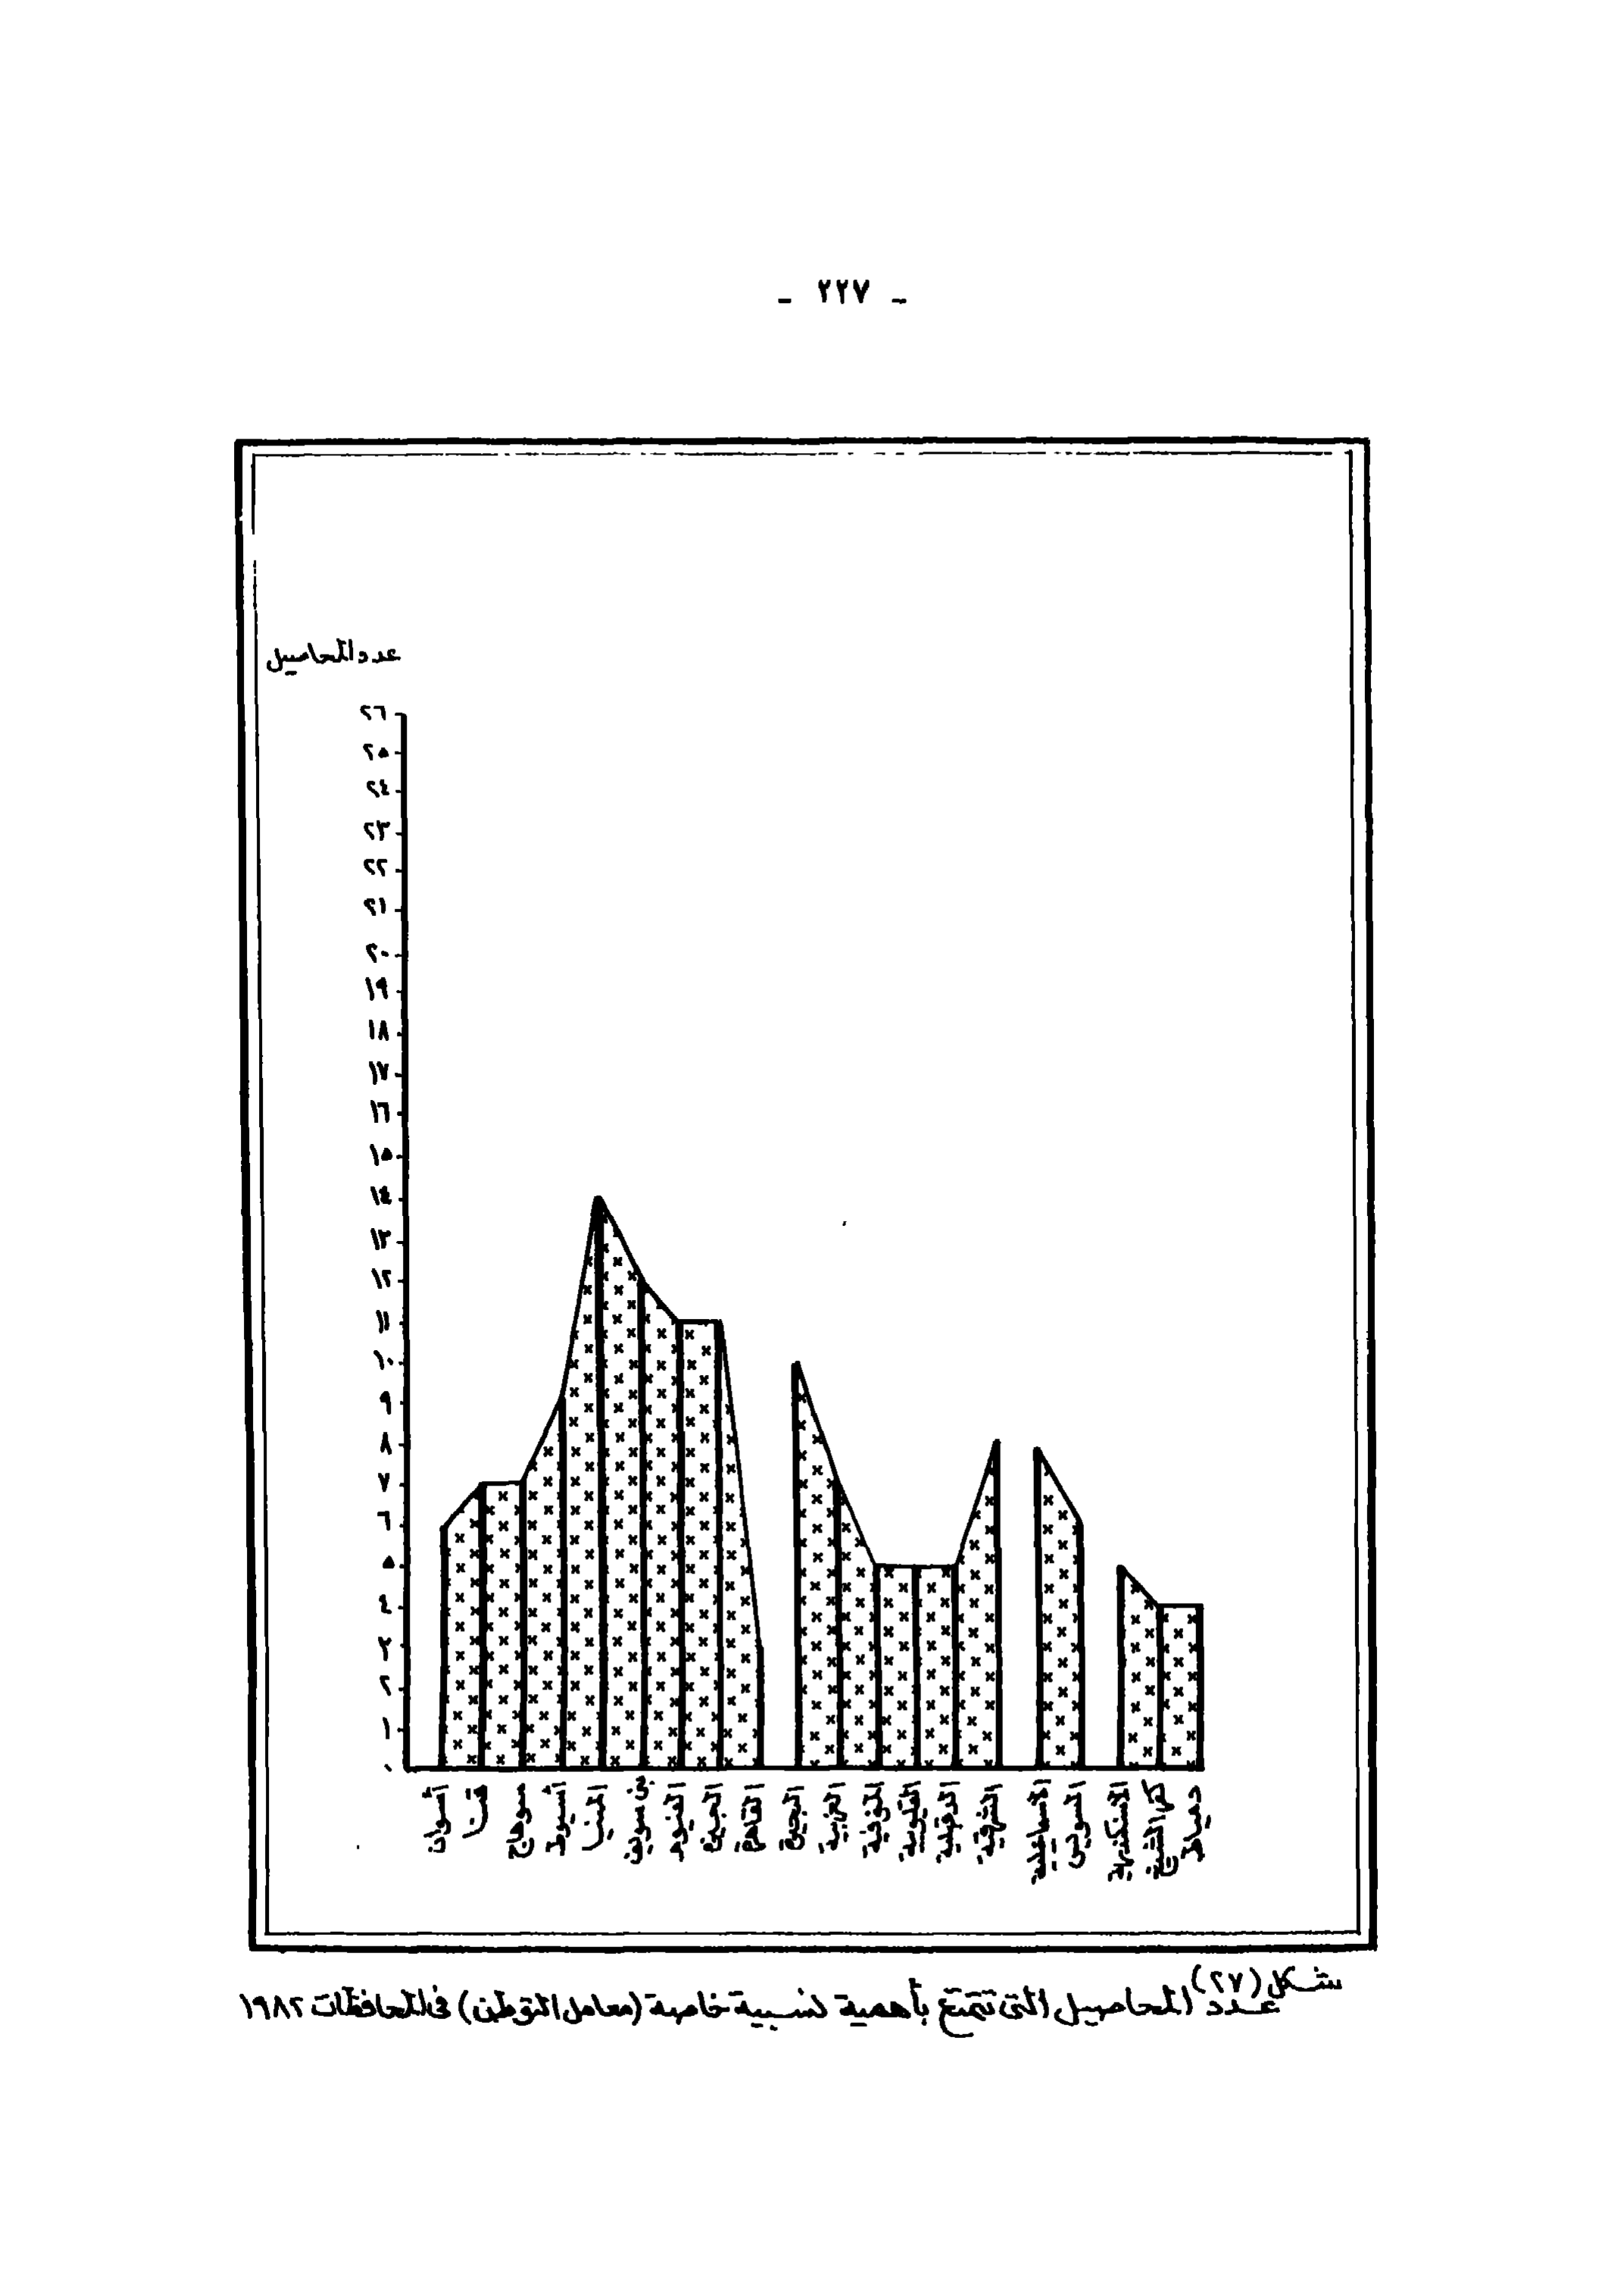 - ٢٢٧ -
عدد المحاصيل
٢٦
٢٥
٢٤
٢٣
٢٢
٢١
٢٠
١٩
١٨
١٧
١٦
١٥
١٤
١٣
١٢
١١
١٠
٩
٨
٧
٦
٥
٤
٣
٢
١
٠
أسوان
قنا
سوهاج
أسيوط
المنيا
بنى سويف
الفيوم
الجيزة
القاهرة
البحيرة
الغربية
المنوفية
القليوبية
الدقهلية
الشرقية
الاسماعلية
السويس
الاسكندرية
كفر الشيخ
دمياط
شكل (٢٧)
عدد المحاصيل التى تتمتع بأهمية نسبية خاصة (معامل التوطن) فى المحافظات ١٩٨٢